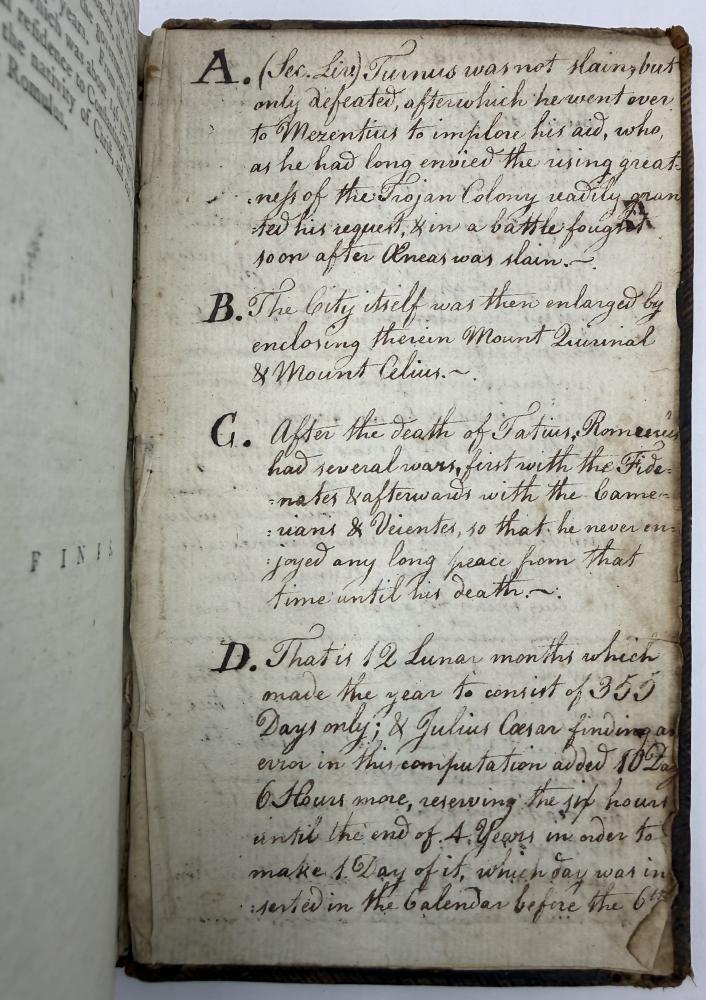 which was about
d residence to Constantinople
the nativity of Christ, and
Romulus.
years.
the govern
F I N I S
A. (Sec. Liv) Turnus was not slain, but
only defeated, after which he went over
to Mezentius to implore his aid, who,
as he had long envied the rising great:
:ness of the Trojan Colony readily gran
:ted his request, & in a battle fought
soon after Æneas was slain.~
B. The City itself was then enlarged by
enclosing therein Mount Quirinal
& Mount Celius.~.
C. After the death of Tatius, Romulus
had several wars, first with the Fide:
:nates & afterwards with the Came:
:rians & Veientes, so that he never en:
:joyed any long peace from that
time until his death.~.
D. That is 12 Lunar months which
made the year to consist of 355
Days only; & Julius Cæsar finding an
error in this computation added 10 Day
6 Hours more, reserving the six hours
until the end of 4 Years in order to
make 1 Day of it, which day was in
:serted in the Calendar before the 6th